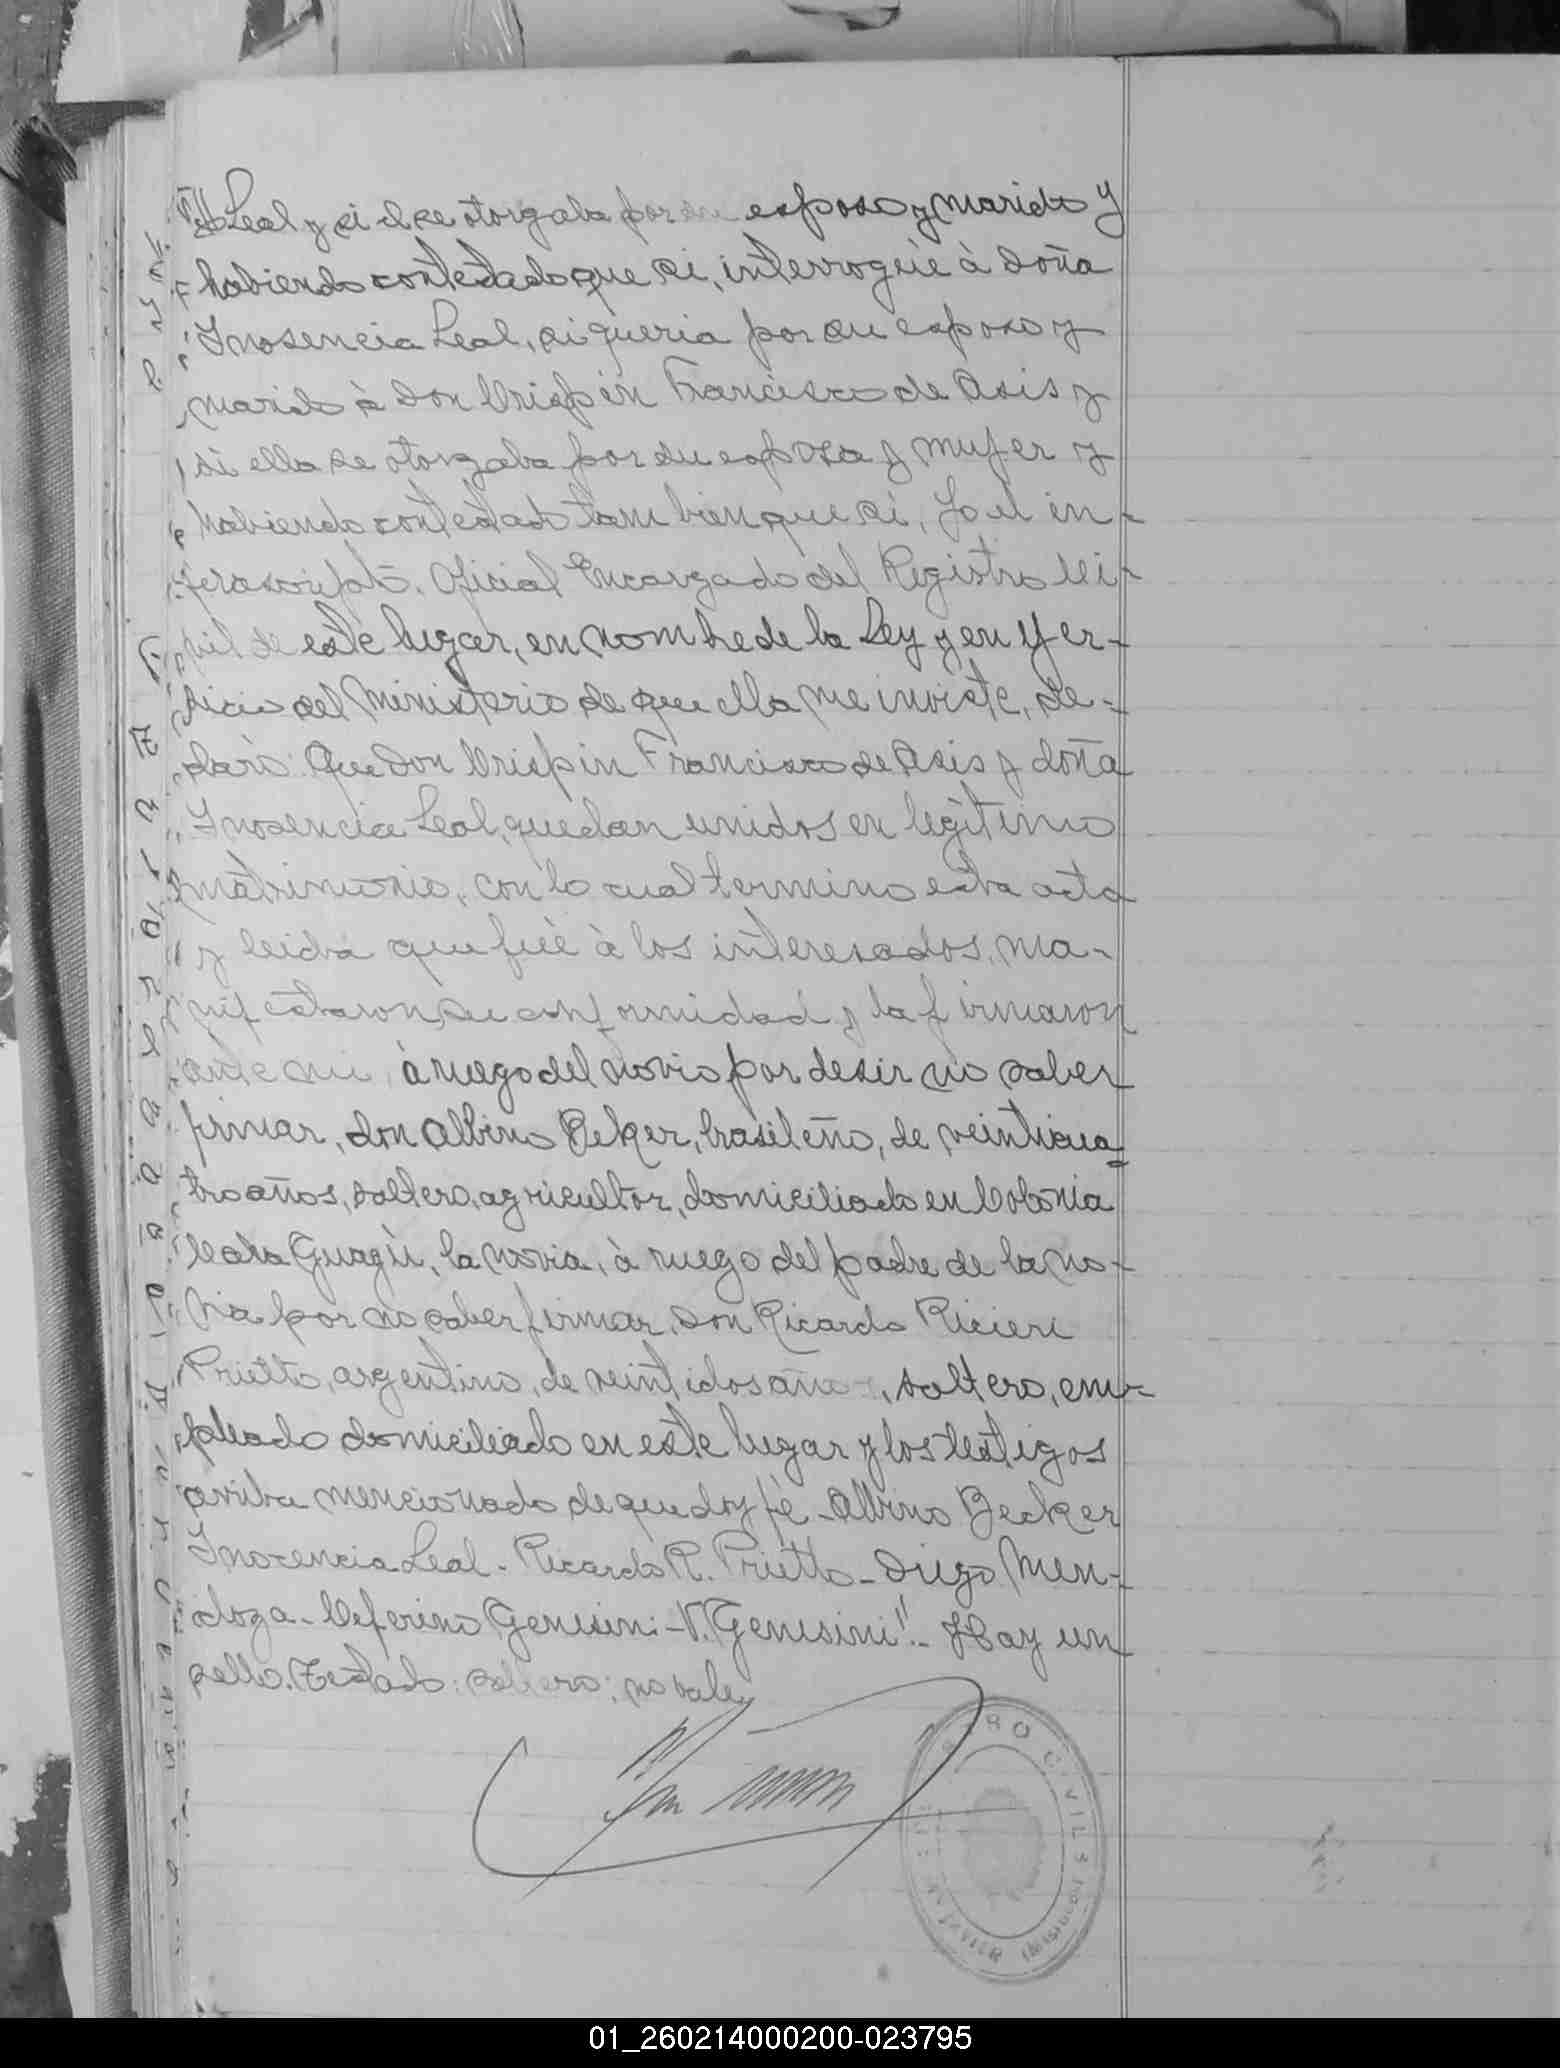 Leal y si el se otorgaba por su esposo y marido y
habiendo contestado que si, interroguè à doña
Inosencia Leal, si queria por su esposo y
marido à don Crispin Francisco de Asis y
si ella se otorgaba por su esposa y mujer y
habiendo contestado tambien que si, Yo el in-
frascripto. Oficial Encargado del Registro Ci-
vil de este lugar, en nombre de la Ley y en Yer-
sicio del Ministerio de que ella me inviste, de-
claro: Que don Crispin Francisco de Asis y doña
Inosencia Leal, quedan unidos en legitimo
matrimonio, con lo cual termino esta acta
y leida que fuè à los interesados, ma-
nifestaron su conformidad y la firmaron
ante mi, à ruego del novio por desir no saber
firmar, don Albino Beker, brasileño, de veinticua-
tro años, soltero, agricultor, domiciliado en Colonia
Cara Guagù, la novia, à ruego del padre de la no-
via por no saber firmar, don Ricardo Ricieri
Prietto, argentino, de veintidos años, soltero, em-
pleado domiciliado en este lugar y los testigos
arriba mencionado de que doy fè - Albino Becker
Inocencia Leal - Ricardo R. Prietto - Diego Men-
doza - Ceferino Genesini - V. Genesini". - Hay un
sello. Testado: soltero: no vale
CIVIL
JAVIER (MISIONES)
01_260214000200-023795